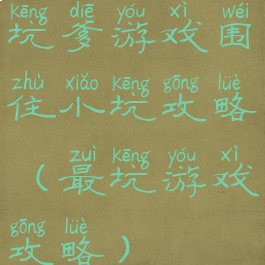 kēng diē yóu xì wéi
坑爹游戏围
zhù xiǎo kēng gōng lüè
住小坑攻略
zuì kēng yóu xì
（最坑游戏
gōng lüè
攻略）